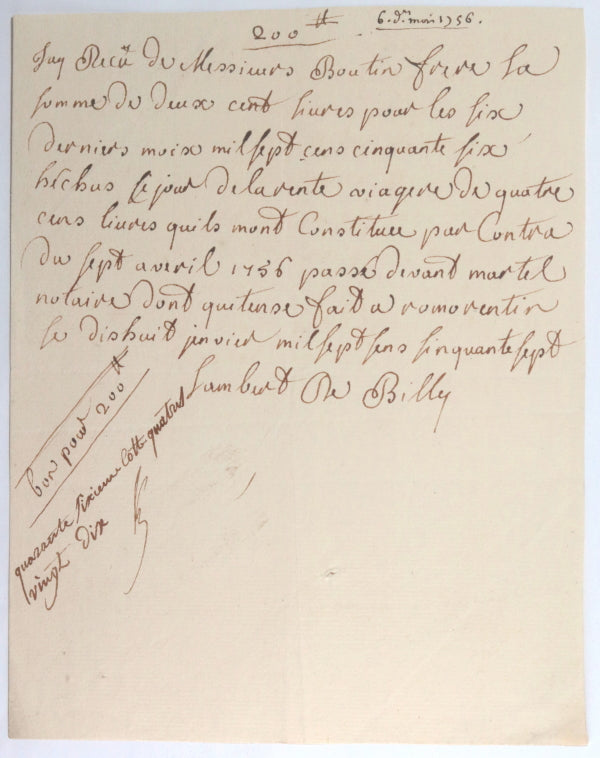 200 ₶
6. d.rs mois 1756.
Jay Recü de Messieurs Boutin frere La
somme de deux cent livres pour les six
derniers moix mil sept cens cinquante six
héchus Ce jour de la rente viagere de quatre
cens livres quils mont Constituee par Contra
du sept averil 1756 passé devant martel
notaire dont quitense fait a romorentin
le dishuit jenvier mil sept sens sinquante sept
Lambert De Billy
bon pour 200 ₶
quarante sixieme Cotte quatre
vingt dix